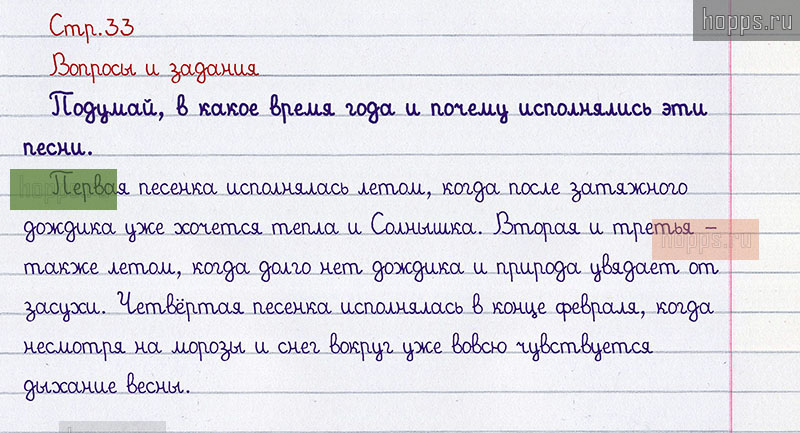 hopps.ru
Стр.33
Вопросы и задания
Подумай, в какое время года и почему исполнялись эти
песни.
Первая песенка исполнялась летом, когда после затяжного
дождика уже хочется тепла и Солнышка. Вторая и третья –
hopps.ru
также летом, когда долго нет дождика и природа увядает от
засухи. Четвёртая песенка исполнялась в конце февраля, когда
несмотря на морозы и снег вокруг уже вовсю чувствуется
дыхание весны.